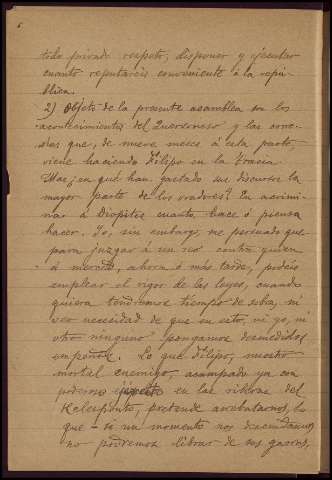 todo privado respeto, disponer y ejecutar
cuanto reputareis conveniente á la repú-
blica.
2) Objeto de la presente asamblea son los
acontecimientos del Quersoneso y las corre-
rías que, de nueve meses á esta parte,
viene haciendo Filipo en la Tracia.
Mas ¿en qué han gastado sus discursos la
mayor parte de los oradores? En acrimi-
nar á Diopites cuanto hace ó piensa
hacer. Yo, sin embargo, me persuado que
para juzgar á un reo contra quien
á merced, ahora ó más tarde, podéis
emplear el rigor de las leyes, cuando
quiera tendremos tiempo de sobra, ni
veo necesidad de que en esto, ni yo, ni
otro ninguno pongamos desmedidos
empeños. Lo que Filipo, nuestro
mortal enemigo, acampado ya con
poderoso ejército en las riberas del
Helesponto, pretende arrebatarnos, lo
que — si un momento nos descuidamos
no podremos librar de sus garras,